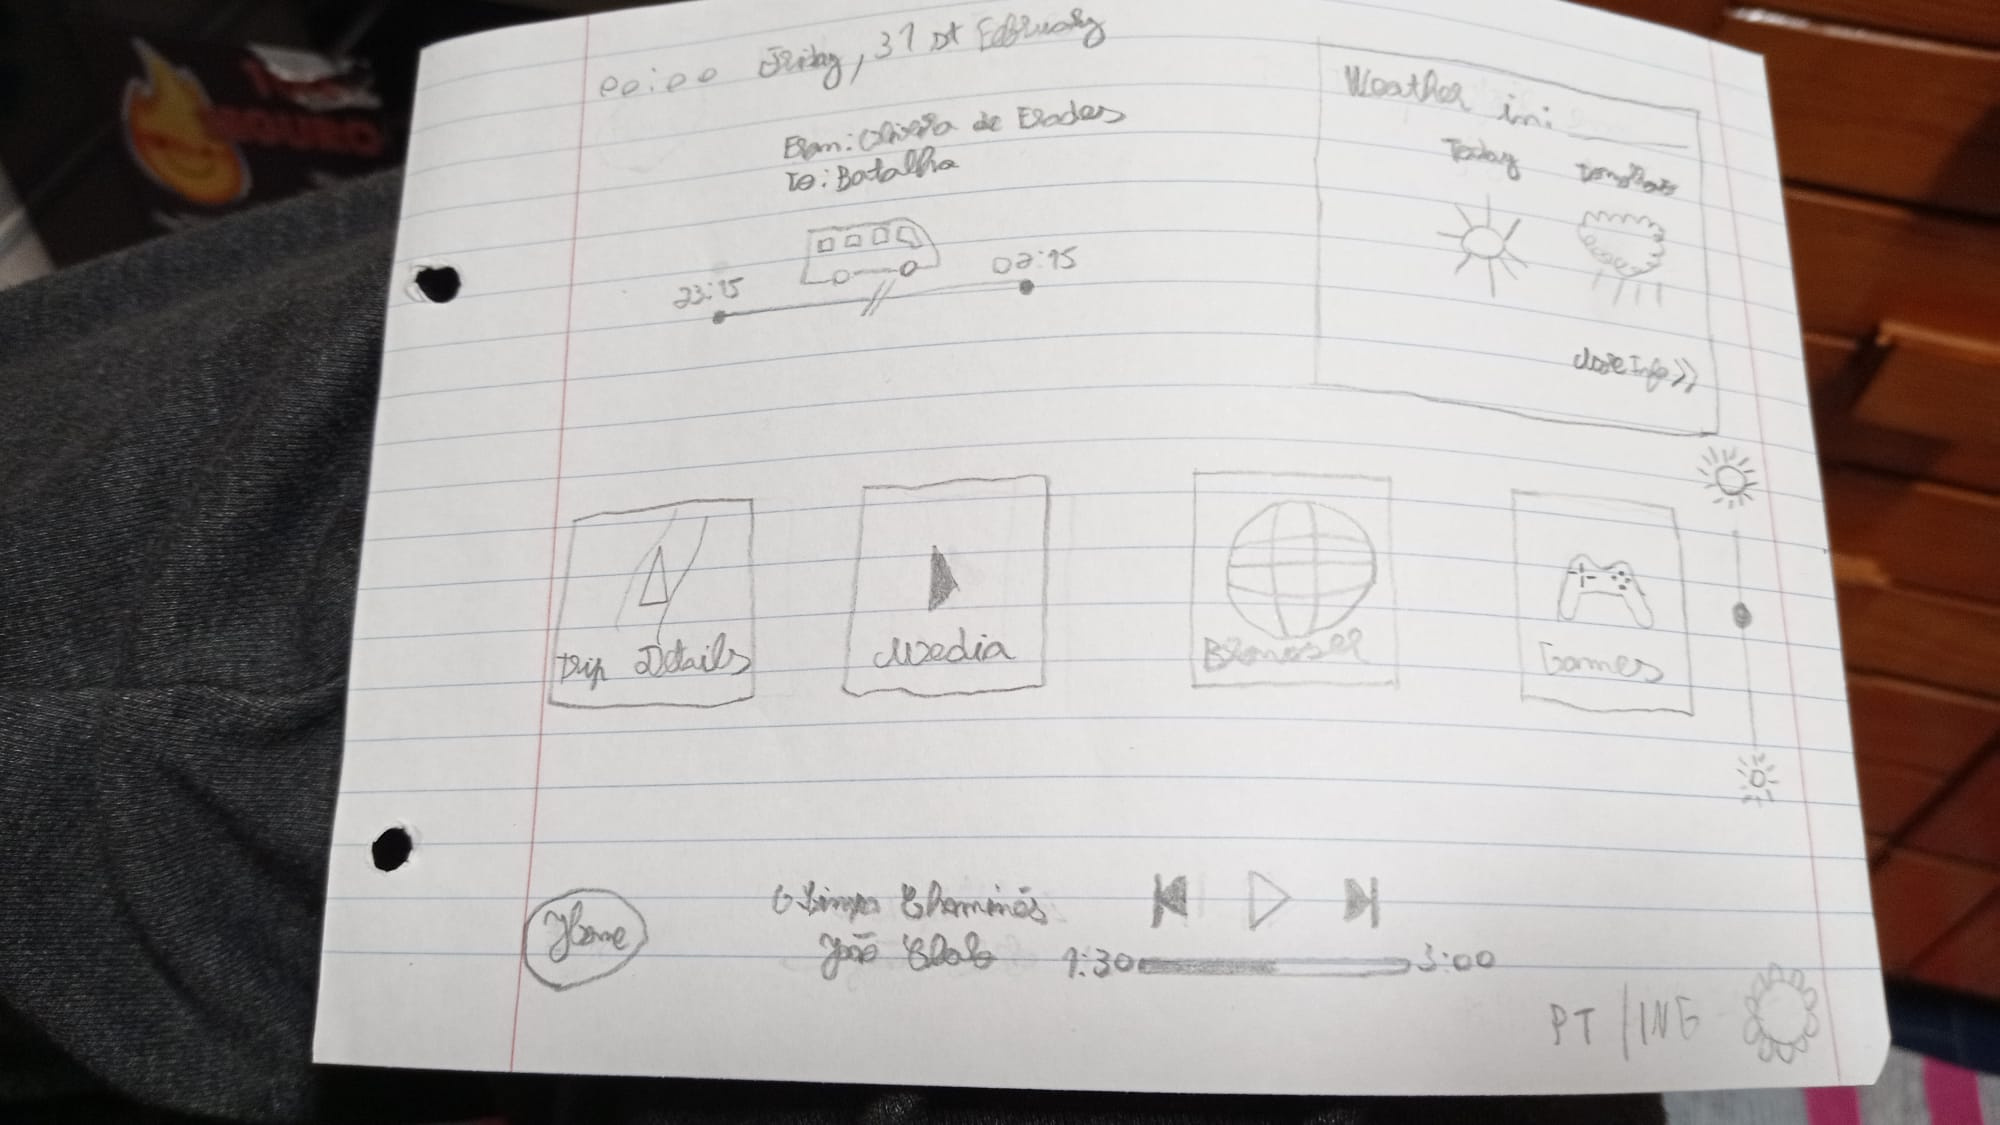 00:00 Friday, 31st February
From: Oliveira de Frades
To: Batalha
23:15
02:15
Weather in:
Today
tomorrow
More Info >>
Trip Details
Media
Browser
Games
Home
O Limpa Chaminés
João
1:30
3:00
PT / ING